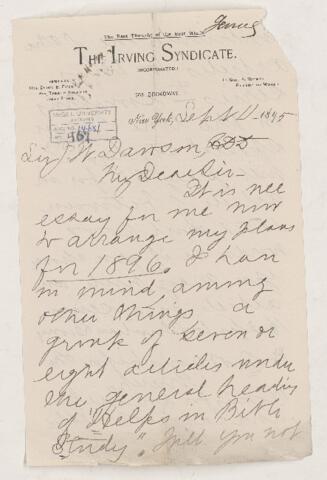 The Best Thought of the Best Minds
THE IRVING SYNDICATE.
INCORPORATED
BROADWAY
New York, Sept 11 1895
McGILL UNIVERSITY
Sir J W Dawson,
My Dear Sir—
It is nec
essary for me now
to arrange my plans
for 1896. I have
in mind among
other things a
group of seven or
eight articles under
the general heading
of "Helps in Bible
Study". Will you not